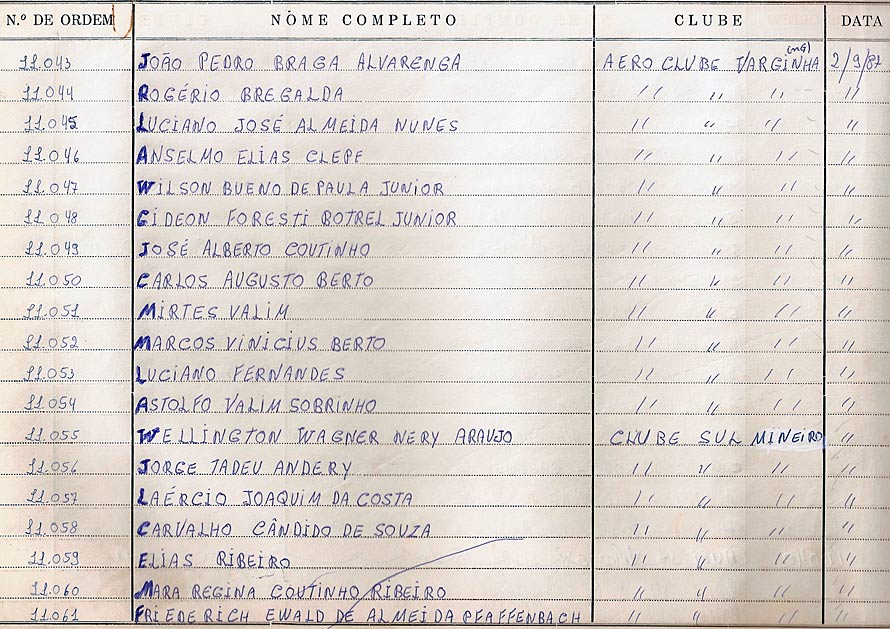 N.º DE ORDEM NOME COMPLETO CLUBE DATA
11.043 JOÃO PEDRO BRAGA ALVARENGA AERO CLUBE VARGINHA (MG) 2/9/87
11.044 ROGÉRIO BREGALDA " " " "
11.045 LUCIANO JOSÉ ALMEIDA NUNES " " " "
11.046 ANSELMO ELIAS CLEPE " " " "
11.047 WILSON BUENO DE PAULA JUNIOR " " " "
11.048 GIDEON FORESTI BOTREL JUNIOR " " " "
11.049 JOSÉ ALBERTO COUTINHO " " " "
11.050 CARLOS AUGUSTO BERTO " " " "
11.051 MIRTES VALIM " " " "
11.052 MARCOS VINICIUS BERTO " " " "
11.053 LUCIANO FERNANDES " " " "
11.054 ASTOLFO VALIM SOBRINHO " " " "
11.055 WELLINGTON WAGNER NERY ARAUJO CLUBE SUL MINEIRO "
11.056 JORGE TADEU ANDERY " " " "
11.057 LAÉRCIO JOAQUIM DA COSTA " " " "
11.058 CARVALHO CÂNDIDO DE SOUZA " " " "
11.059 ELIAS RIBEIRO " " " "
11.060 MARA REGINA COUTINHO RIBEIRO " " " "
11.061 FRIEDERICH EWALD DE ALMEIDA PFAFFENBACH " " " "